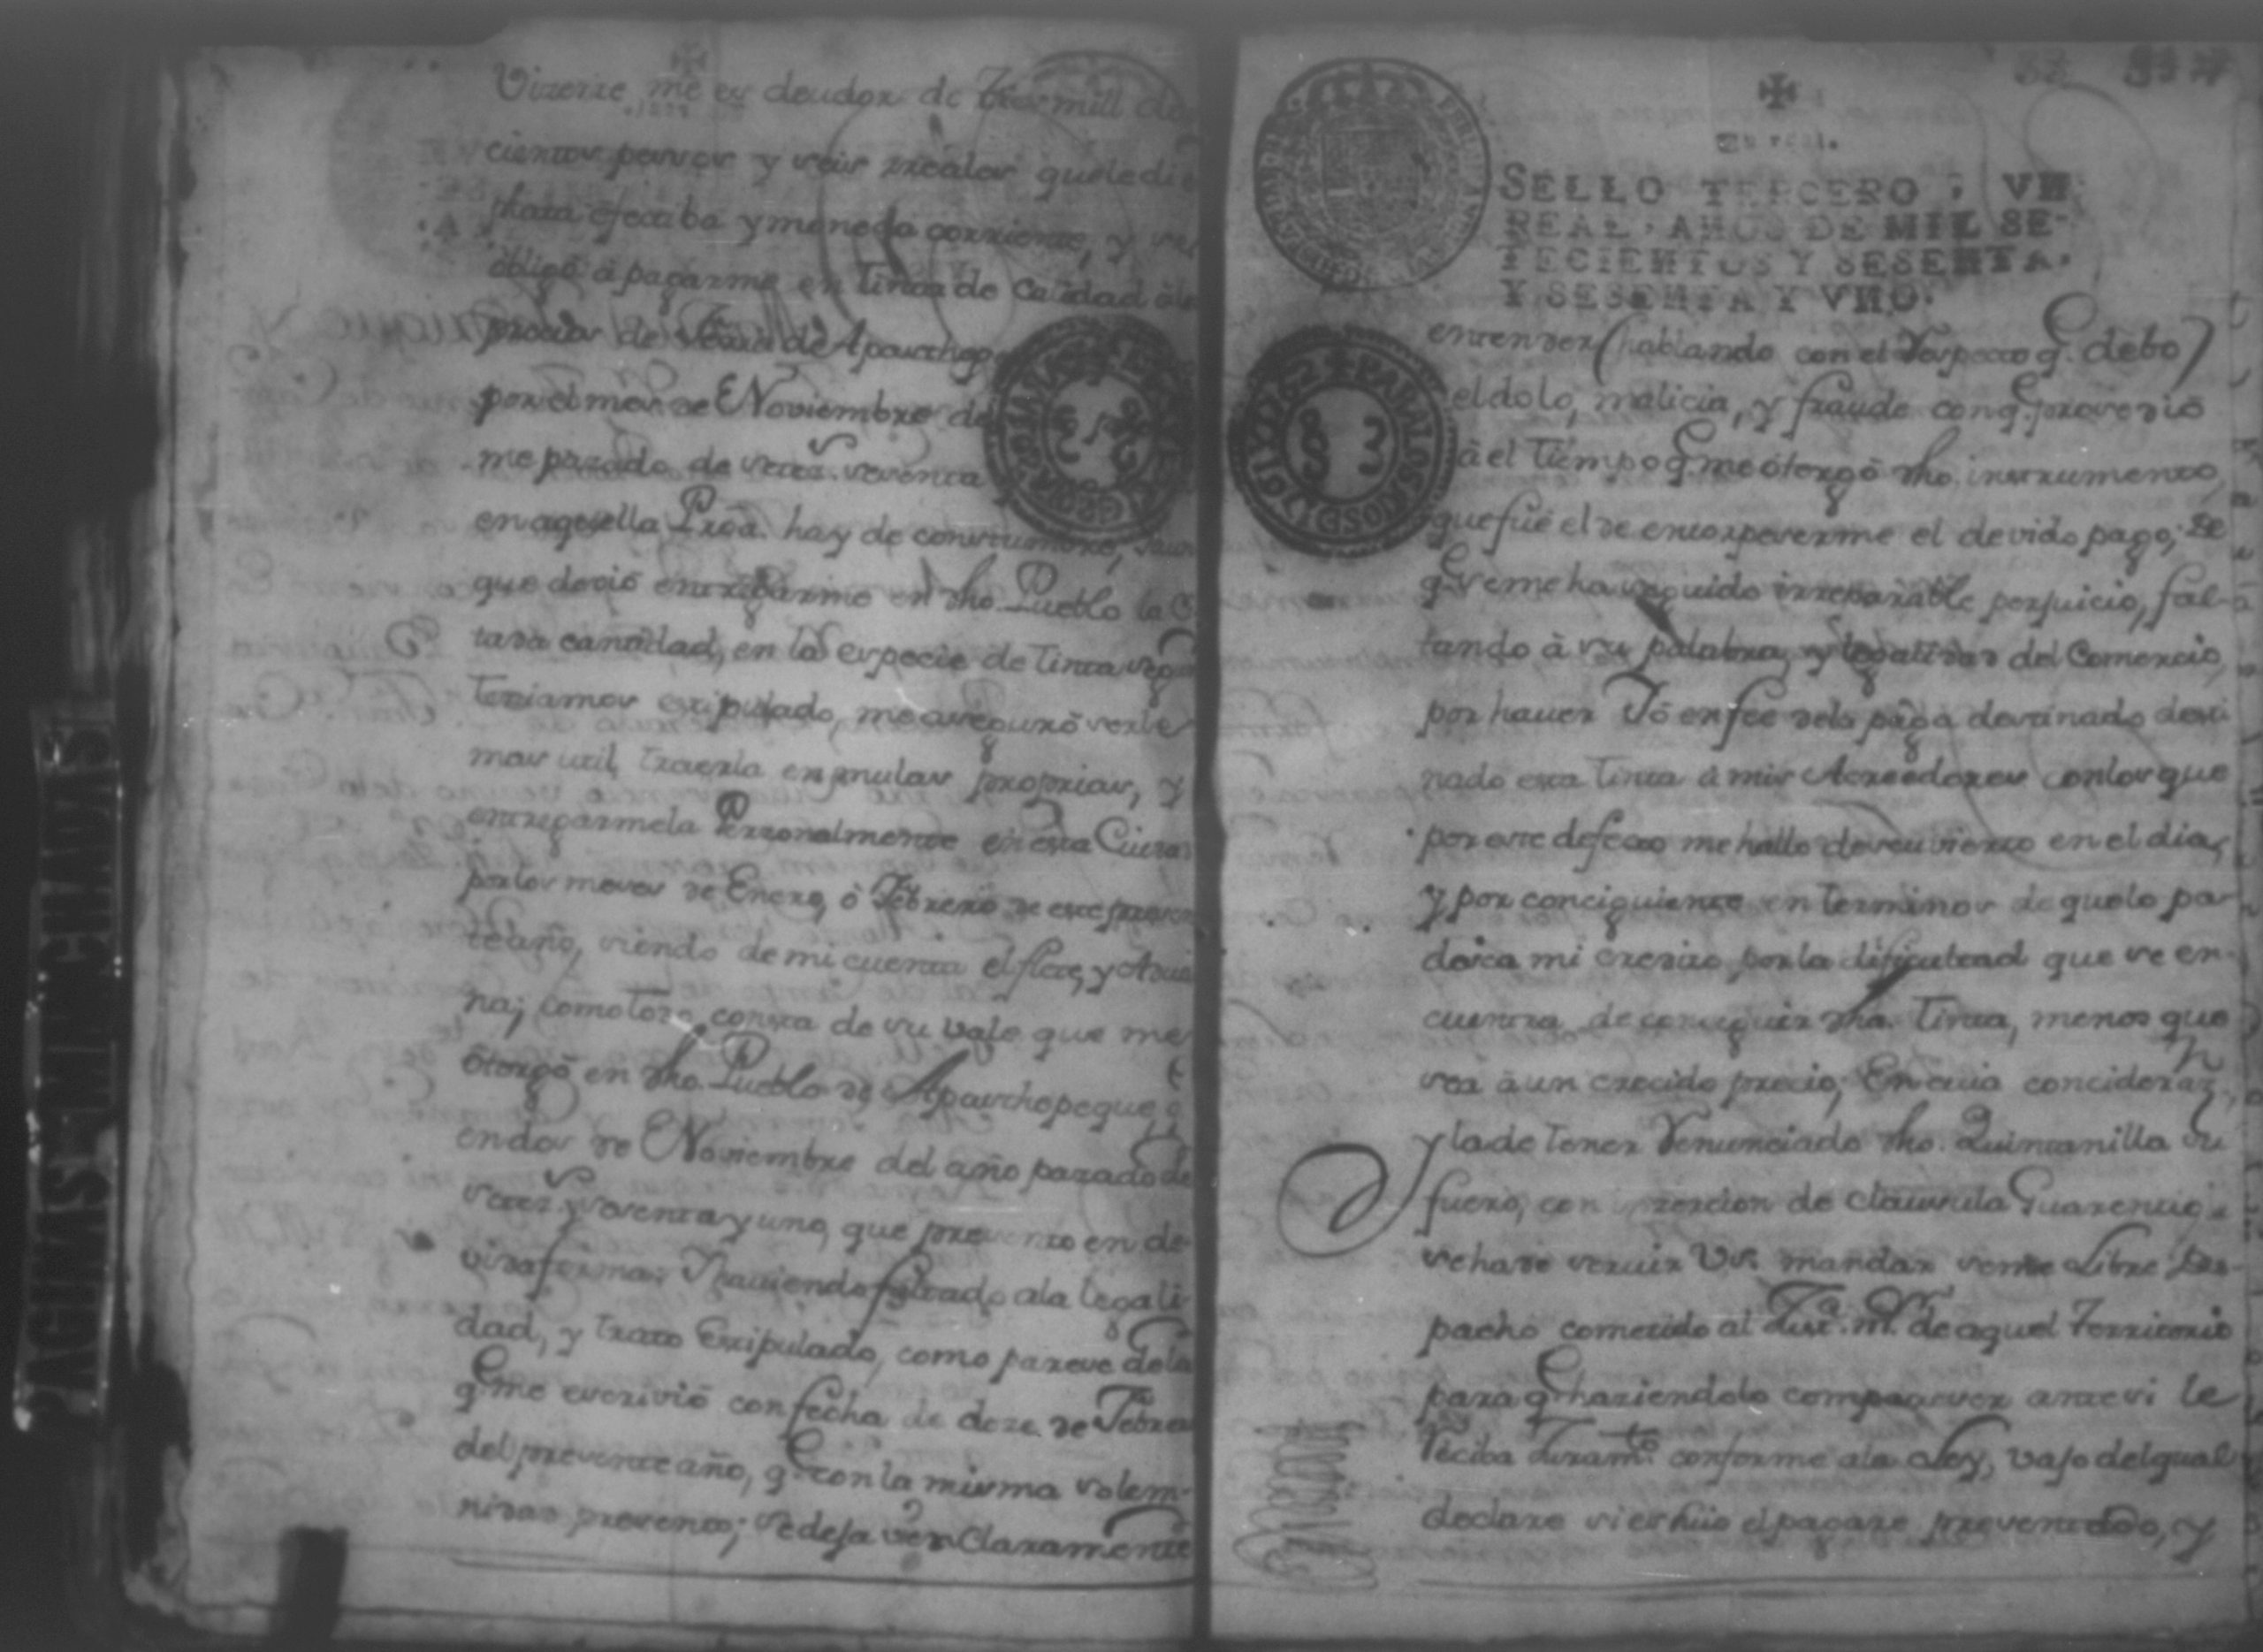 Vizente me es deudor de tres mill do
cientos pesos y seis rreales que le di
plata efectiba y moneda corriente, y se
obligó á pagarme en tinta de calidad á l
precios de feria de Apasthep
por el mes de Noviembre de
me pasado de setes. sesenta
en aquella Proa. hay de constumbre,
que devió entregarme en dho. Pueblo la C
tada cantidad, en la especie de tinta seg
teniamos extipulado, me aseguró serle
mas util traerla en mulas proprias, y
entregarmela Perzonalmente en esta Ciuda
por los meses de Enero, ó Febrero de este presen
te año, siendo de mi cuenta el flete, y Adua
na; como todo consta de su vale que me
otorgó en dho. Pueblo de Apasthepeque,
en dos de Noviembre del año pasado de
setes. y sesenta y uno, que presento en de
vida forma: Y hauiendo faltado a la legali
dad, y trato Extipulado, como parese de la
q me escrivió con fecha de doze de Febrer
del presente año, q con la misma solem-
nidad presento; se deja ver claramente
SELLO TERCERO, VN
REAL, AÑOS DE MIL SE-
TECIENTOS Y SESENTA,
Y SESENTA Y VNO.
entender (hablando con el respecto q debo)
el dolo, malicia, y fraude con q prosedió
á el tiempo q me otorgó dho. instrumento,
que fué el de entorpeserme el devido pago; de
q se me ha seguido irreparable perjuicio, fal-
tando á su palabra, y legalidad del Comercio,
por hauer Yó en fee de la paga destinado desti
nado esta tinta á mis Acreedores con los que
por este defecto me hallo descuvierto en el dia,
y por conciguiente en terminos de que lo pa-
desca mi credito, por la dificultad que se en-
cuentra de conseguir dha. tinta, menos que
sea á un crecido precio; En cuia concideraz.n,
y la de tener Renunciado dho. Quintanilla su
fuero, con inzercion de clausula Guarentigia
se ha de seruir Vs. mandar se me Libre Des-
pacho cometido al Just.a M.r de aquel Territorio
para q haziendolo comparever ante si le
reciba Juram.to conforme a la Ley, vajo del qual
declare si es suio el pagaré presentado, y
PARA LOS AÑOS D 1762 Y 63